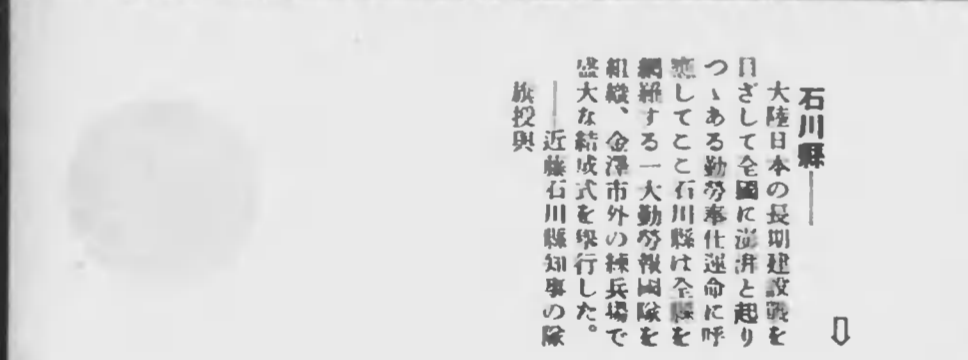 ⇩
石川縣──
大陸日本の長期建設戰を
目ざして全國に澎湃と起り
つゝある勤勞奉仕運命に呼
應してここ石川縣は全縣を
網羅する一大勤勞報國隊を
組織、金澤市外の練兵場で
盛大な結成式を擧行した。
──近藤石川縣知事の隊
旗授與